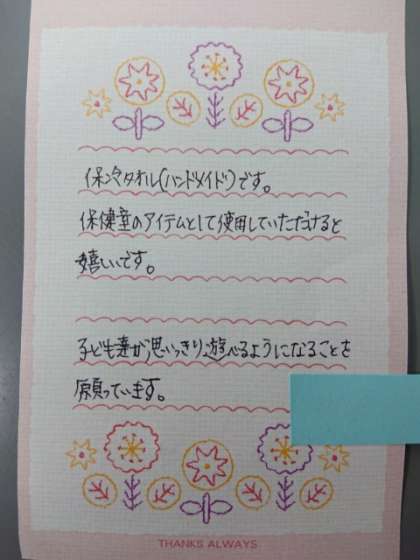 保冷タオル(ハンドメイド)です。
保健室のアイテムとして使用していただけると
嬉しいです。
子ども達が思いっきり遊べるようになることを
願っています。
THANKS ALWAYS